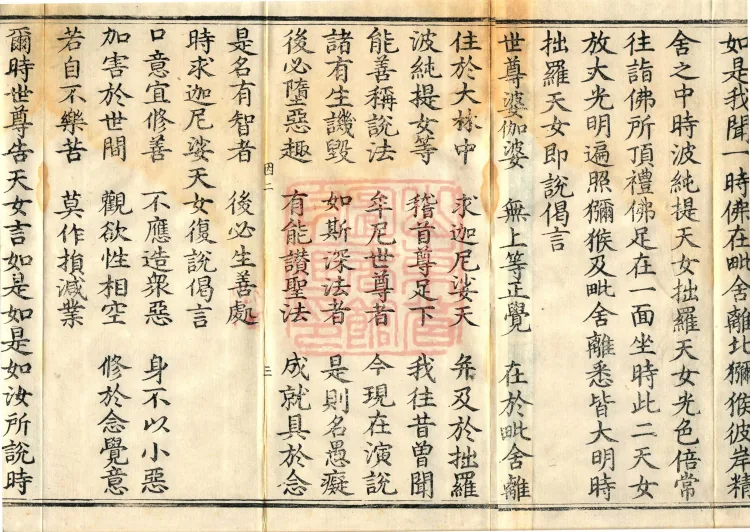 如是我聞一時佛在毗舍離北獼猴彼岸精
舍之中時波純提天女拙羅天女光色倍常
往詣佛所頂禮佛足在一面坐時此二天女
放大光明遍照獼猴及毗舍離悉皆大明時
拙羅天女即說偈言
世尊婆伽婆　無上等正覺　在於毗舍離
住於大林中　求迦尼娑天　并及於拙羅
波純提女等　稽首尊足下　我往昔曾聞
能善稱說法　牟尼世尊者　今現在演說
諸有生譏毀　如斯深法者　是則名愚癡
後必墮惡趣　有能讚聖法　成就具於念
因二　三
是名有智者　後必生善處
時求迦尼娑天女復說偈言
口意宜修善　不應造眾惡　身不以小惡
加害於世間　觀欲性相空　修於念覺意
若自不樂苦　莫作損減業
爾時世尊告天女言如是如是如汝所說時